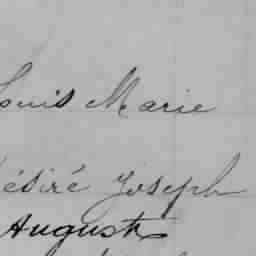 Louis Marie
Désiré Joseph
Auguste